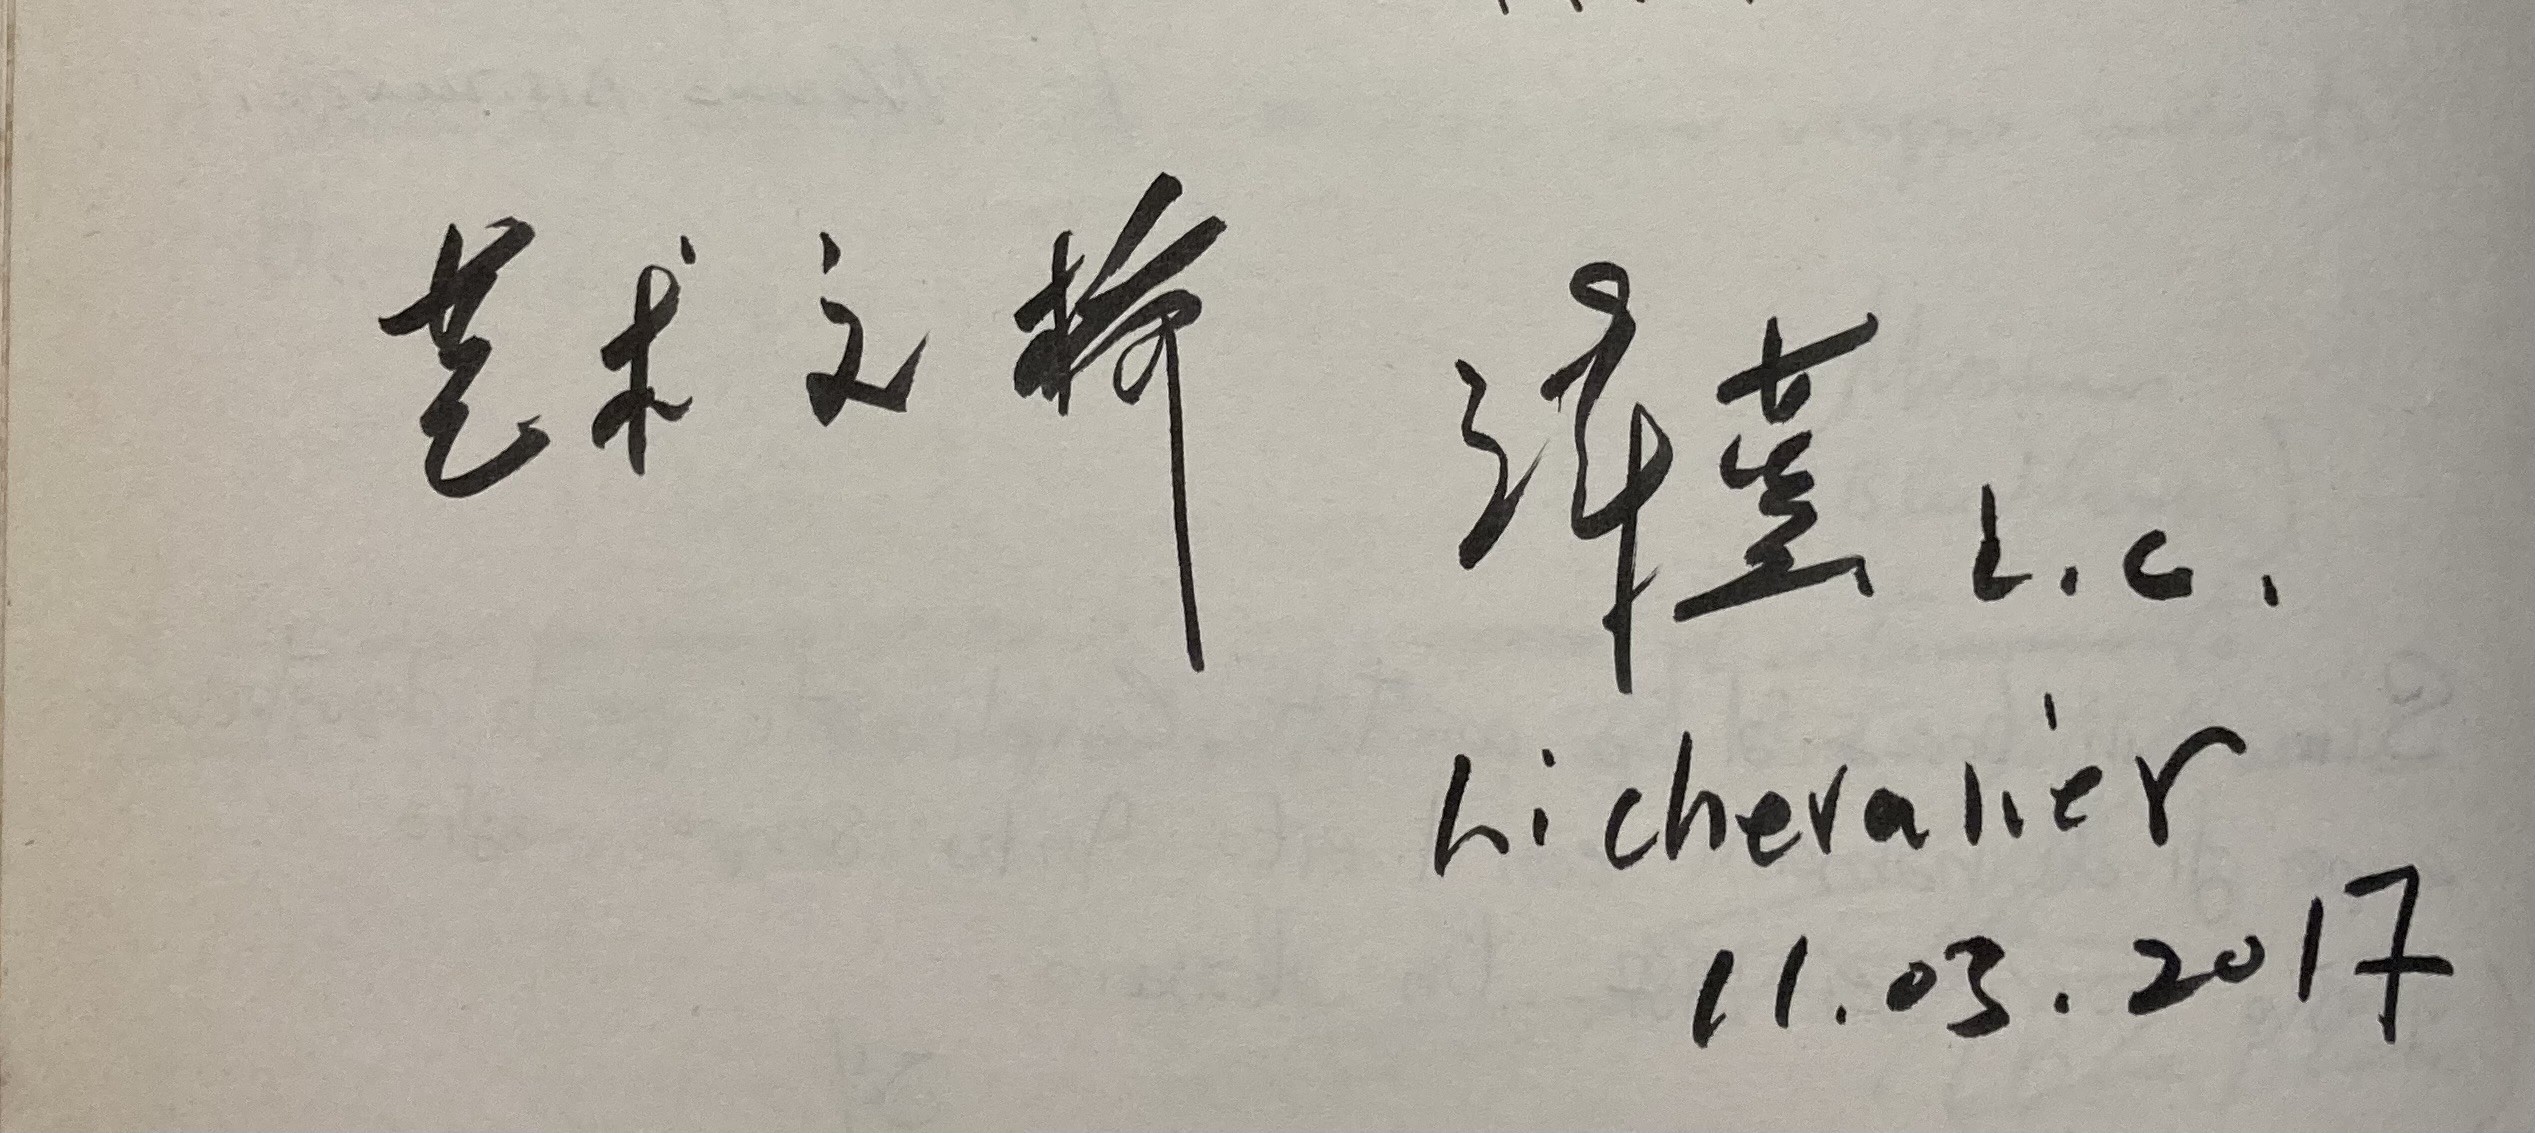 艺术之桥 诗蓝 L.C.
Li chevalier
11.03.2017